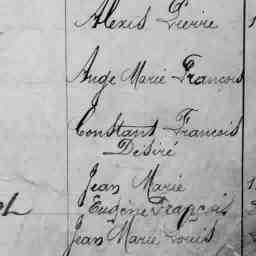 Alexis Pierre
Ange Marie François
Constant Francois
Désiré
Jean Marie
Eugène François
Jean Marie Louis